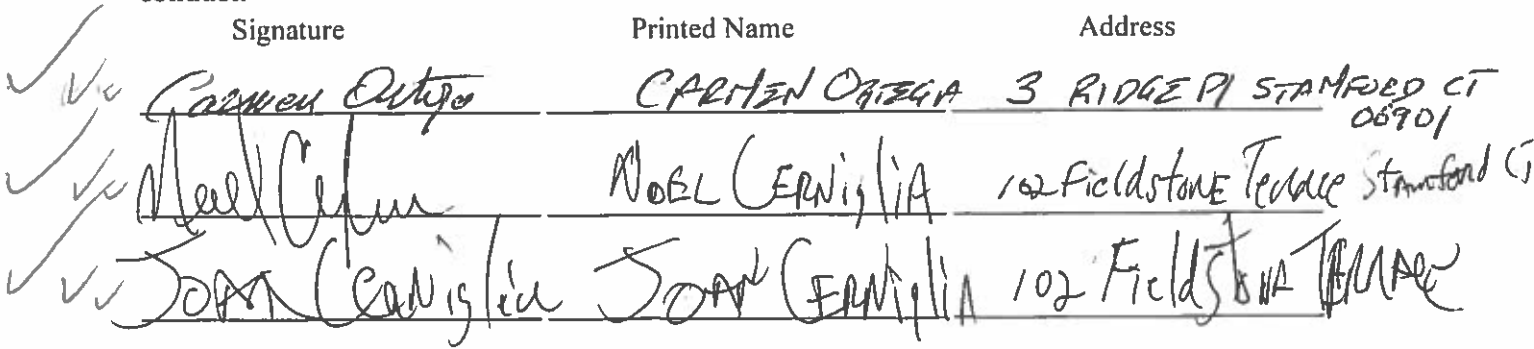 Signature Printed Name Address
Carmen Ortega CARMEN ORTEGA 3 RIDGE Pl STAMFORD CT
06901
Noel NOEL CERNigliA 102 FieldstonE Terrace Stamford CT
JOAN Cerniglia JOAN CERNigliA 102 FieldStone TERRACE